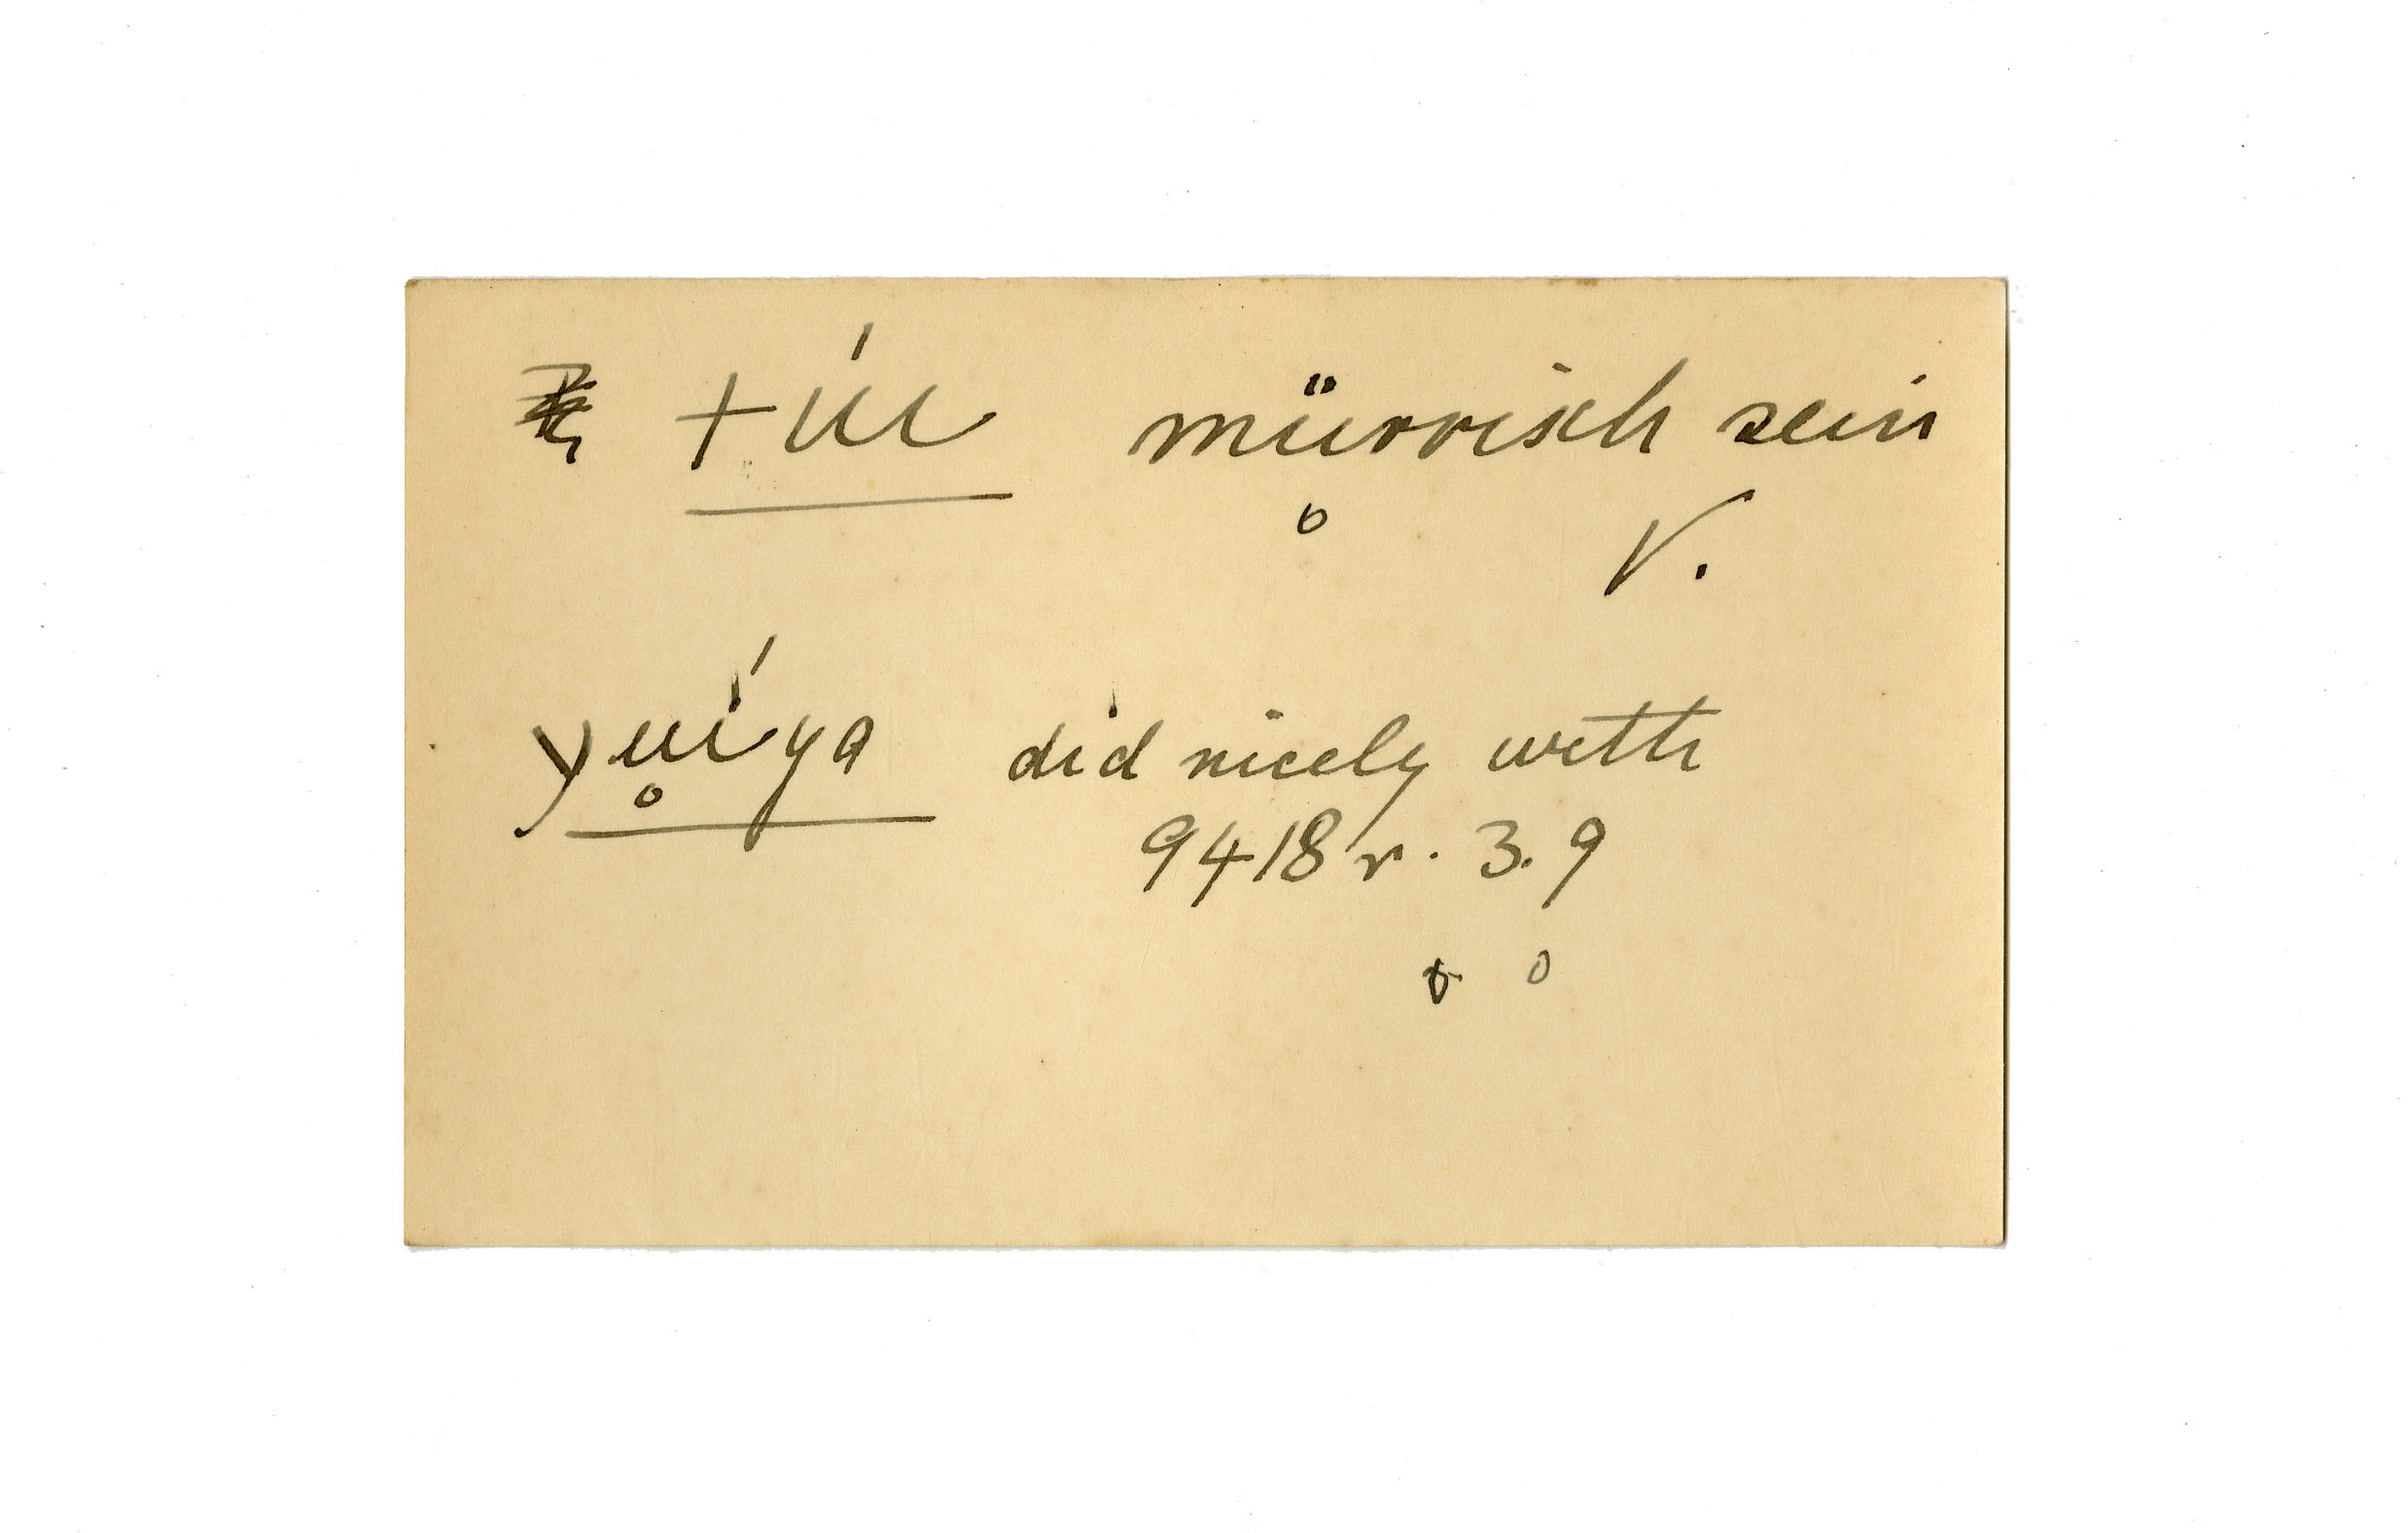 +úi mürrisch sein
V.
yu̥íya did nicely with
9418 r. 3.9